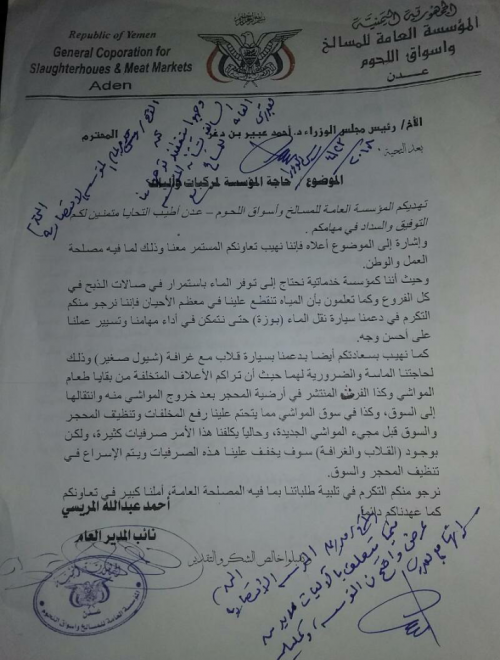 Republic of Yemen
General Coporation for
Slaughterhoues & Meat Markets
Aden
الجمهورية اليمنية
المؤسسة العامة للمسالخ
واسواق اللحوم
عدن
الأخ/ رئيس مجلس الوزراء د. أحمد عبير بن دغر المحترم
بعد التحية
الموضوع / حاجة المؤسسة لمركبات وآليات
تهديكم المؤسسة العامة للمسالخ وأسواق اللحوم – عدن أطيب التحايا متمنين لكم
التوفيق والسداد في مهامكم.
وإشارة إلى الموضوع أعلاه فإننا نهيب تعاونكم المستمر معنا وذلك لما فيه مصلحة
العمل والوطن.
وحيث أننا كمؤسسة خدماتية نحتاج إلى توفر الماء باستمرار في صالات الذبح في
كل الفروع وكما تعلمون بأن المياه تنقطع علينا في معظم الأحيان فإننا نرجو منكم
التكرم في دعمنا سيارة نقل الماء (بوزة) حتى نتمكن في أداء مهامنا وتسيير عملنا
على أحسن وجه.
كما نهيب بسعادتكم أيضا بدعمنا بسيارة قلاب مع غرافة (شيول صغير) وذلك
لحاجتنا الماسة والضرورية لهما حيث أن تراكم الأعلاف المتخلفة من بقايا طعام
المواشي وكذا الفرث المنتشر في أرضية المحجر بعد خروج المواشي منه وانتقالها
إلى السوق، وكذا في سوق المواشي مما يتحتم علينا رفع المخلفات وتنظيف المحجر
والسوق قبل مجيء المواشي الجديدة، وحالياً يكلفنا هذا الأمر صرفيات كثيرة، ولكن
بوجود (القلاب والغرافة) سوف يخفف علينا هذه الصرفيات ويتم الإسراع في
تنظيف المحجر والسوق.
نرجو منكم التكرم في تلبية طلباتنا بما فيه المصلحة العامة، أملنا كبير في تعاونكم
كما عهدناكم دائماً.
وتقبلوا خالص الشكر والتقدير
أحمد عبدالله المريسي
نائب المدير العام